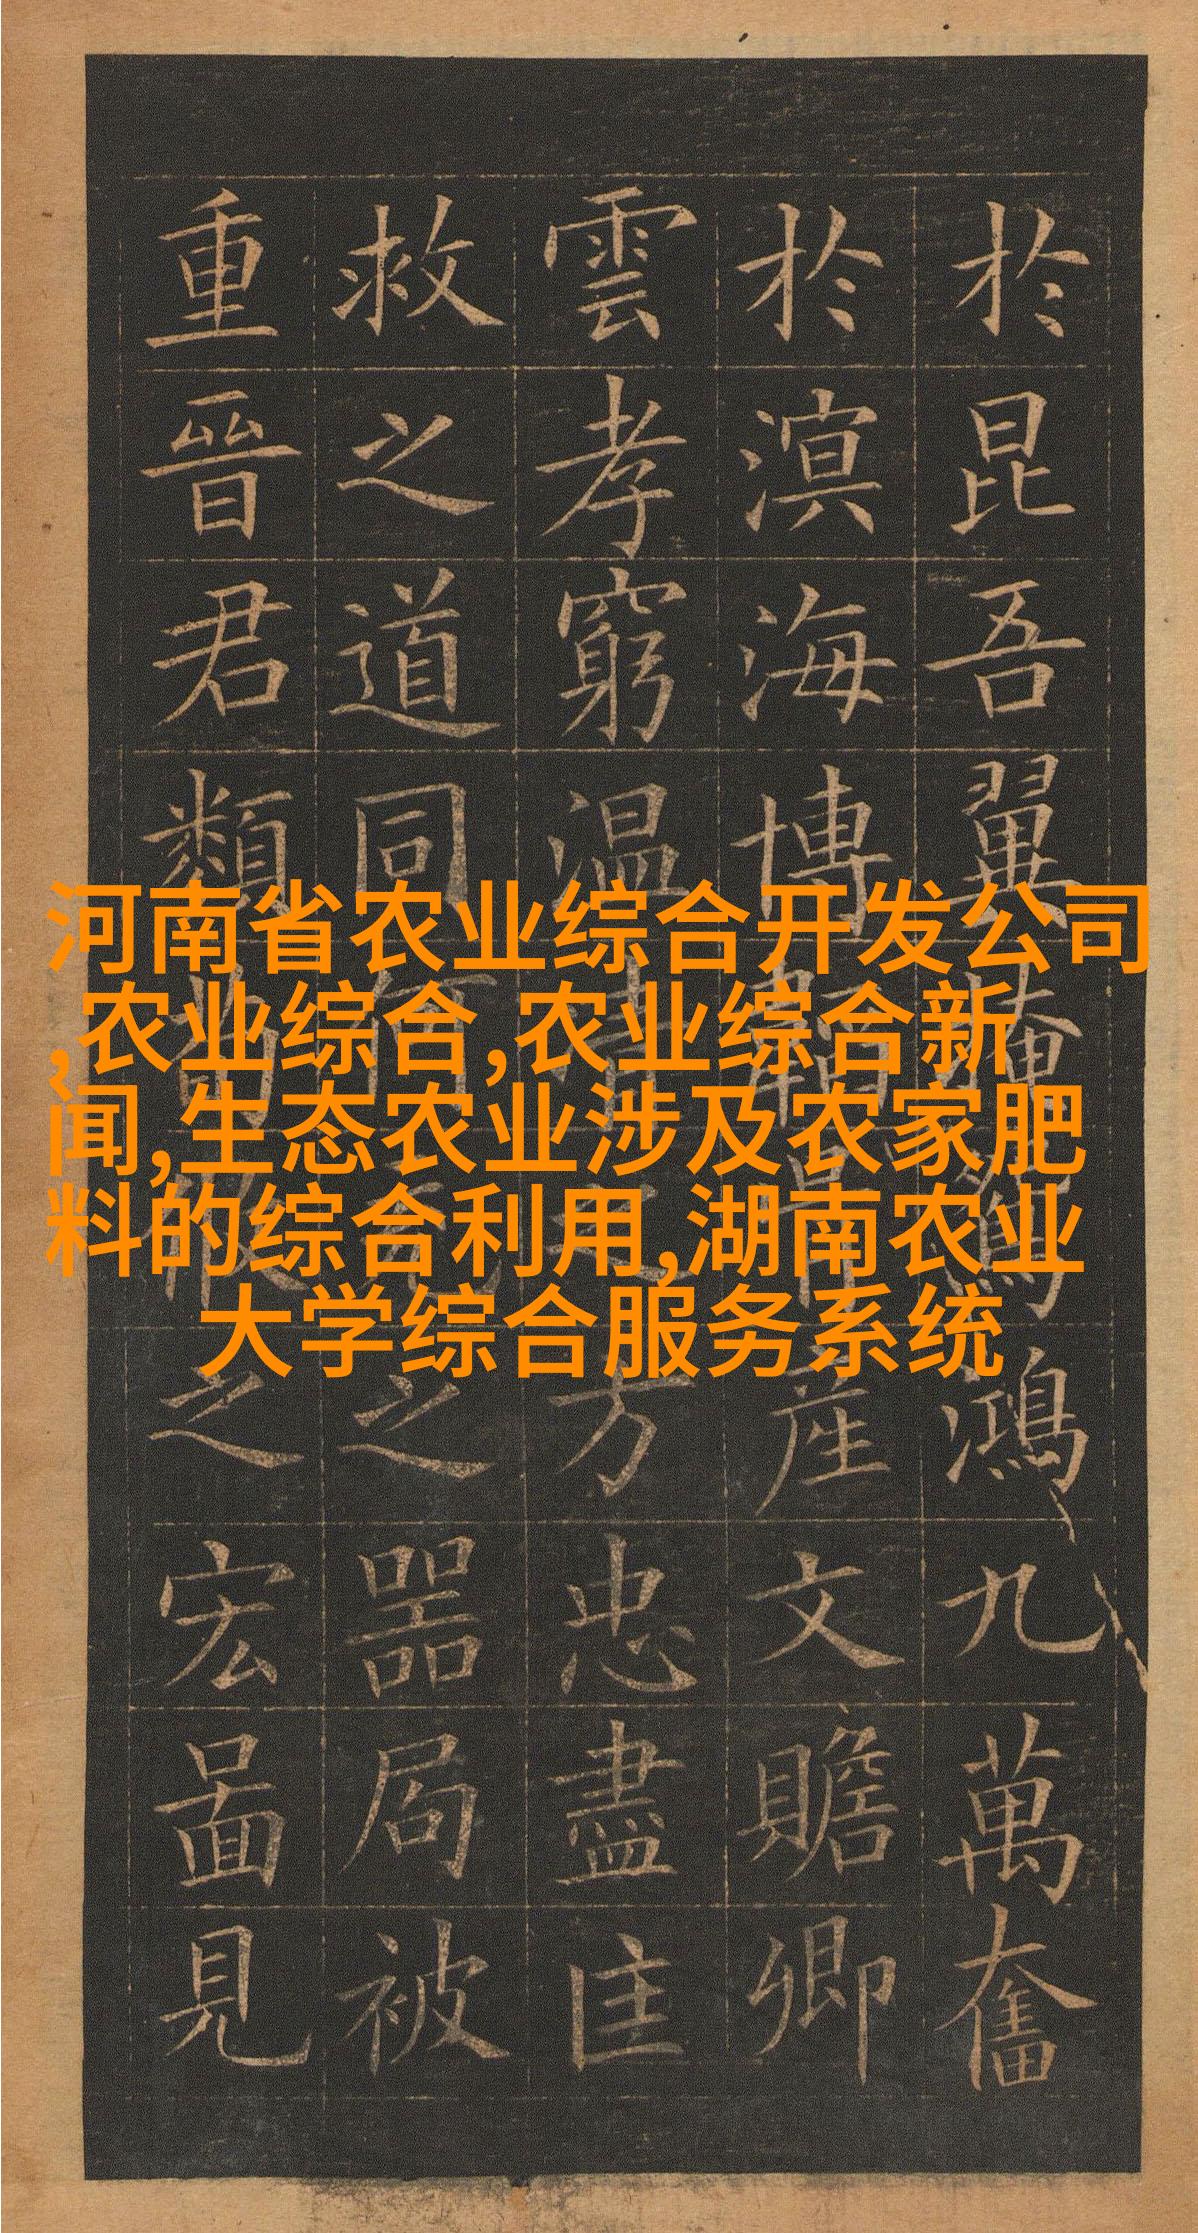 河南省农业综合开发公司
,农业综合,农业综合新
闻,生态农业涉及农家肥
料的综合利用,湖南农业
大学综合服务系统
於昆吾翼鴻九萬奮
於溟海博產文贍卿
雲孝窮温之方忠盡匡
救之道同之噐局被
重晉君類之宏啚見